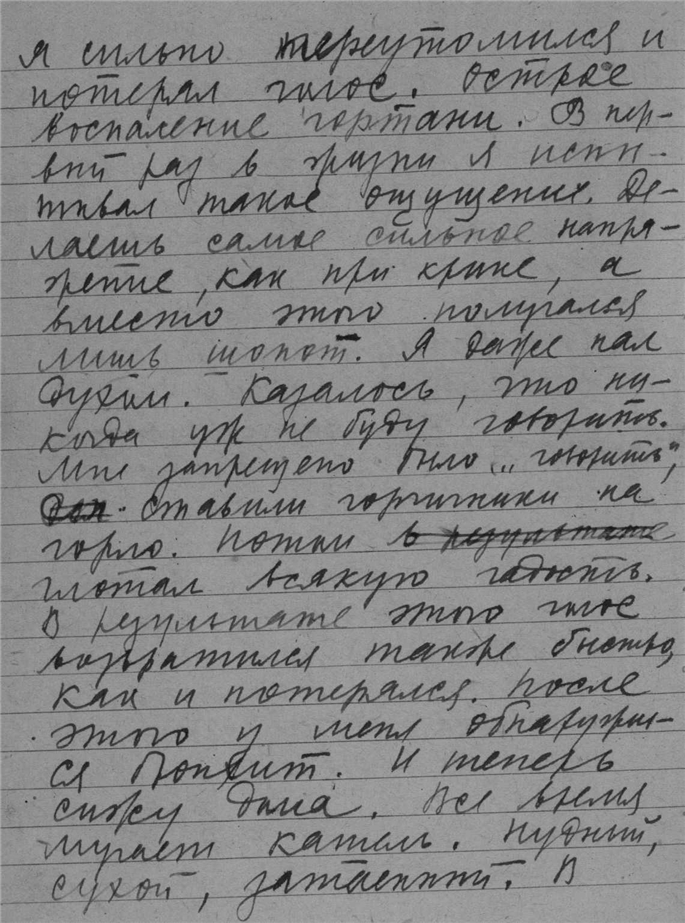 Я сильно переутомился и
потерял голос. Острое
воспаление гортани. В пер-
вый раз в жизни я испы-
тывал такое ощущение. Де-
лаешь самое сильное напря-
жение, как при крике, а
вместо этого получался
лишь шопот. Я даже пал
духом. Казалось, что ни-
когда уж не буду говорить.
Мне запрещено было „говорить",
ставили горчичники на
горло. Потом в результате
глотал всякую гадость.
В результате этого голос
возвратился также быстро,
как и потерялся. После
этого у меня обнаружил-
ся бронхит. И теперь
сижу дома. Все время
мучает кашель. Нудный,
сухой, затяжной. В